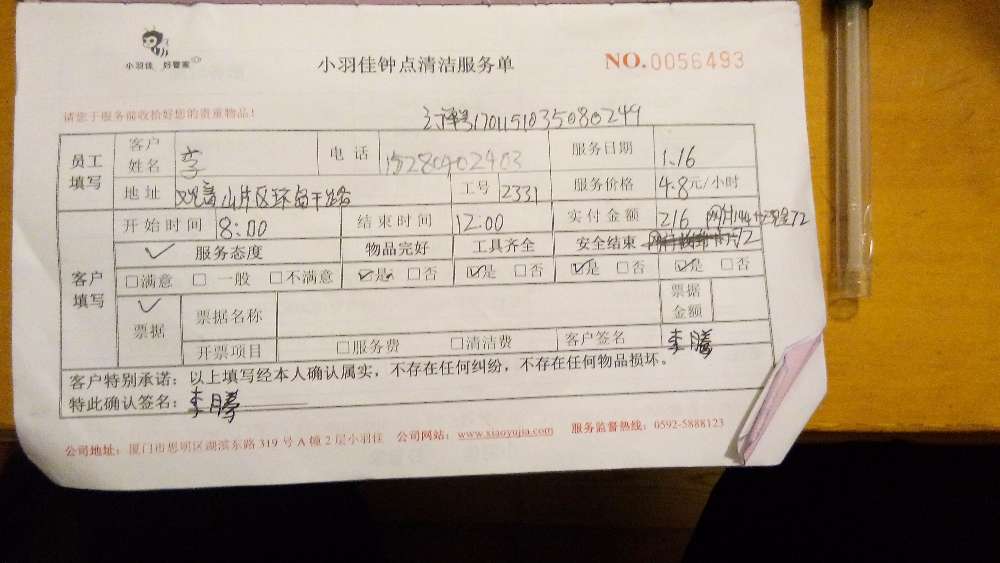 小羽佳 好管家
小羽佳钟点清洁服务单
NO.0056493
请您于服务前收拾好您的贵重物品!
订单号1701151035080249
员工填写 客户姓名 李 电话 15280402403 服务日期 1.16
地址 观音山片区环岛干路 工号 2331 服务价格 48元/小时
客户填写 开始时间 8:00 结束时间 12:00 实付金额 216 网付144 现金72
服务态度 物品完好 工具齐全 安全结束
□满意 □一般 □不满意 ☑是 □否 ☑是 □否 ☑是 □否 ☑是 □否
票据 票据名称 票据金额
开票项目 □服务费 □清洁费 客户签名 李腾
客户特别承诺:以上填写经本人确认属实,不存在任何纠纷,不存在任何物品损坏。
特此确认签名:李腾
公司地址:厦门市思明区湖滨东路319号A幢2层小羽佳 公司网站:www.xiaoyujia.com 服务监督热线:0592-5888123